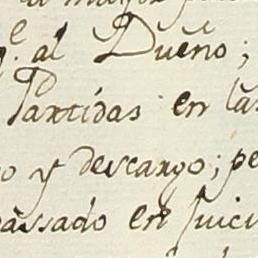 q.e al Dueño;
Partidas en las
o y descargo; pe
passado en Juici